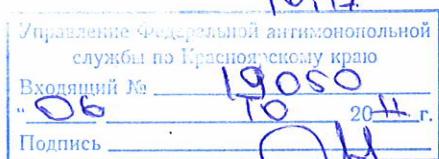 Управление Федеральной антимонопольной
службы по Красноярскому краю
Входящий № 19050
"06" 10 2011 г.
Подпись